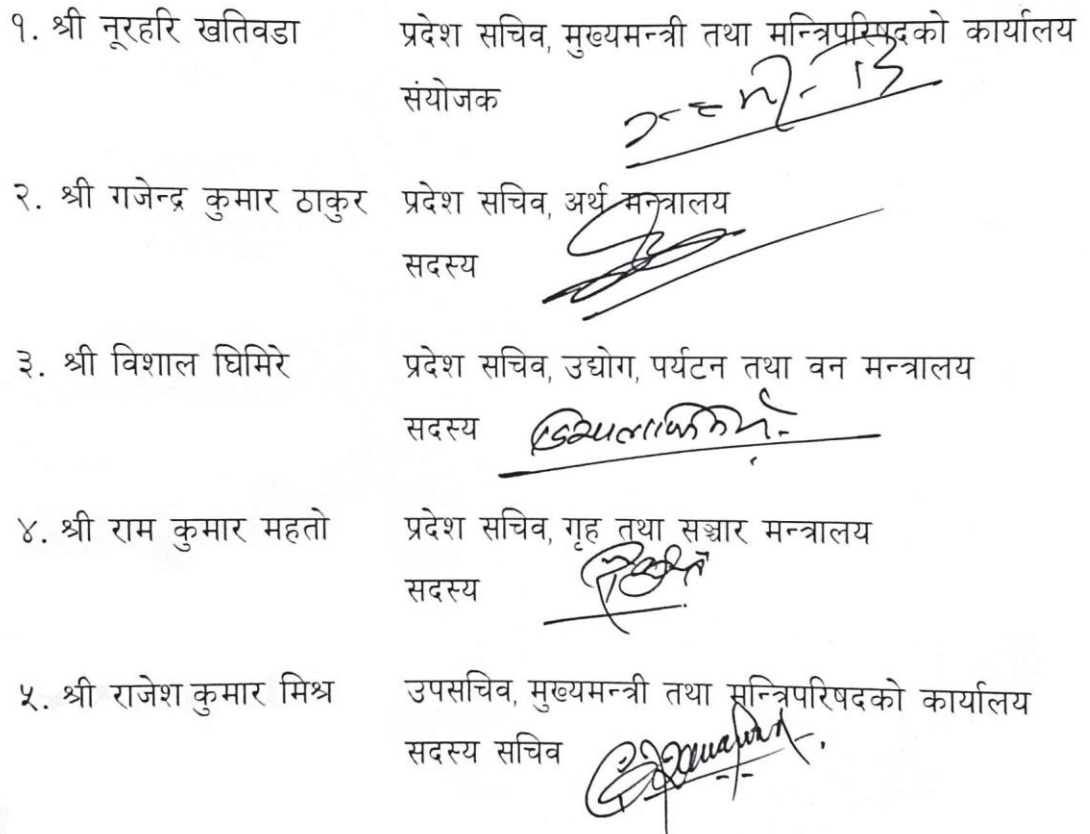 १. श्री नूरहरि खतिवडा प्रदेश सचिव, मुख्यमन्त्री तथा मन्त्रिपरिषदको कार्यालय
संयोजक
२. श्री गजेन्द्र कुमार ठाकुर प्रदेश सचिव, अर्थ मन्त्रालय
सदस्य
३. श्री विशाल घिमिरे प्रदेश सचिव, उद्योग, पर्यटन तथा वन मन्त्रालय
सदस्य
४. श्री राम कुमार महतो प्रदेश सचिव, गृह तथा सञ्चार मन्त्रालय
सदस्य
५. श्री राजेश कुमार मिश्र उपसचिव, मुख्यमन्त्री तथा मन्त्रिपरिषदको कार्यालय
सदस्य सचिव